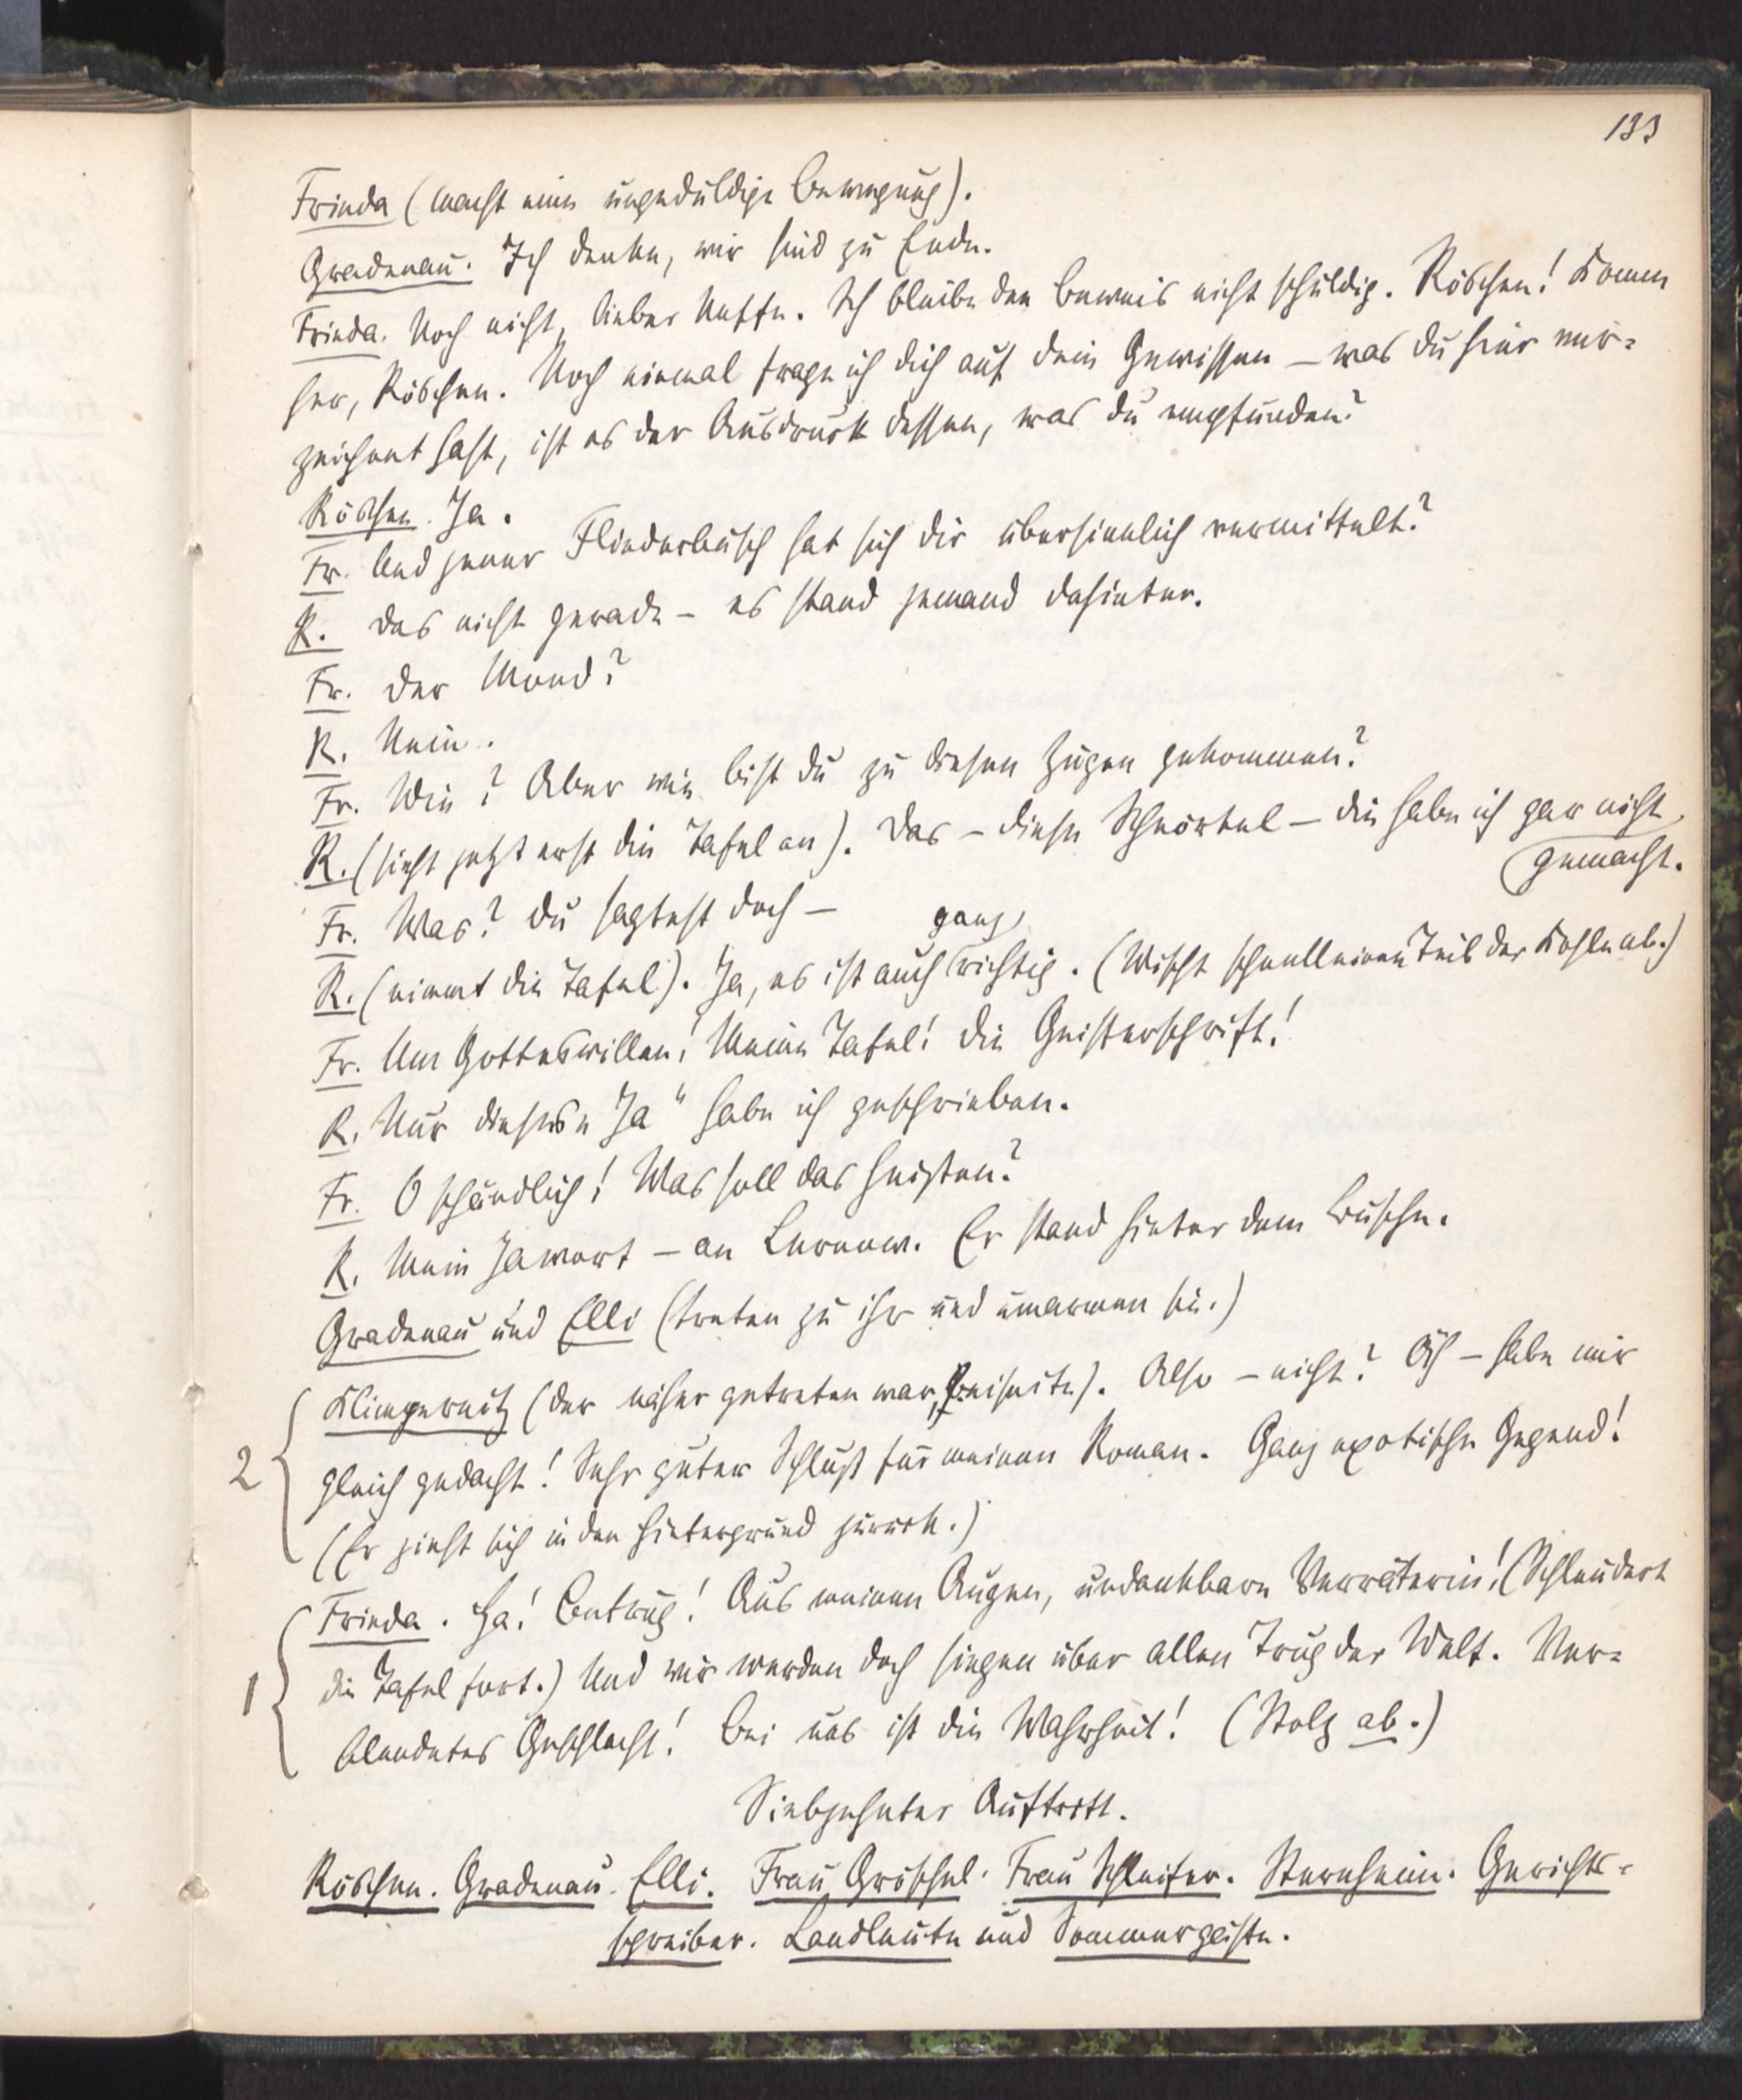 133
Frieda (macht eine ungeduldige Bewegung).
Gradenau. Ich denke, wir sind zu Ende.
Frieda. Noch nicht, lieber Neffe. Ich bleibe den Beweis nicht schuldig. Röschen! Komm
her, Röschen. Noch einmal frage ich dich auf dein Gewissen – was du hier ver=
zeichnet hast, ist es der Ausdruck dessen, was du empfunden?
Röschen. Ja.
Fr. Und jener Fliederbusch hat sich dir übersinnlich vermittelt?
R. Das nicht gerade – es stand jemand dahinter.
Fr. Der Mond?
R. Nein.
Fr. Wie? Aber wie bist du zu diesen Zügen gekommen?
R. (sieht jetzt erst die Tafel an). Das – diese Schnörkel – die habe ich gar nicht
gemacht.
Fr. Was? Du sagtest doch –
R. (nimmt die Tafel). Ja, es ist auch ganz richtig. (Wischt schnell einen Teil der Kohle ab.)
Fr. Um Gotteswillen! Meine Tafel! Die Geisterschrift!
R. Nur dieses „Ja" habe ich geschrieben.
Fr. O schändlich! Was soll das heißen?
R. Mein Jawort – an Lernow. Er stand hinter dem Busche.
Gradenau und Elli (treten zu ihr und umarmen sie.)
2 Klingewitz (der näher getreten war, beiseite). Also – nicht? Äh – habe mir
gleich gedacht! Sehr guter Schluß für meinen Roman. Ganz exotische Gegend!
(Er zieht sich in den Hintergrund zurück.)
1 Frieda. Ha! Betrug! Aus meinen Augen, undankbare Verräterin! (Schleudert
die Tafel fort.) Und wir werden doch siegen über allen Trug der Welt. Ver=
blendetes Geschlecht! Bei uns ist die Wahrheit! (Stolz ab.)
Siebzehnter Auftritt.
Röschen. Gradenau. Elli. Frau Gröschel. Frau Schleifer. Sternheim. Gerichts=
schreiber. Landleute und Sommergäste.